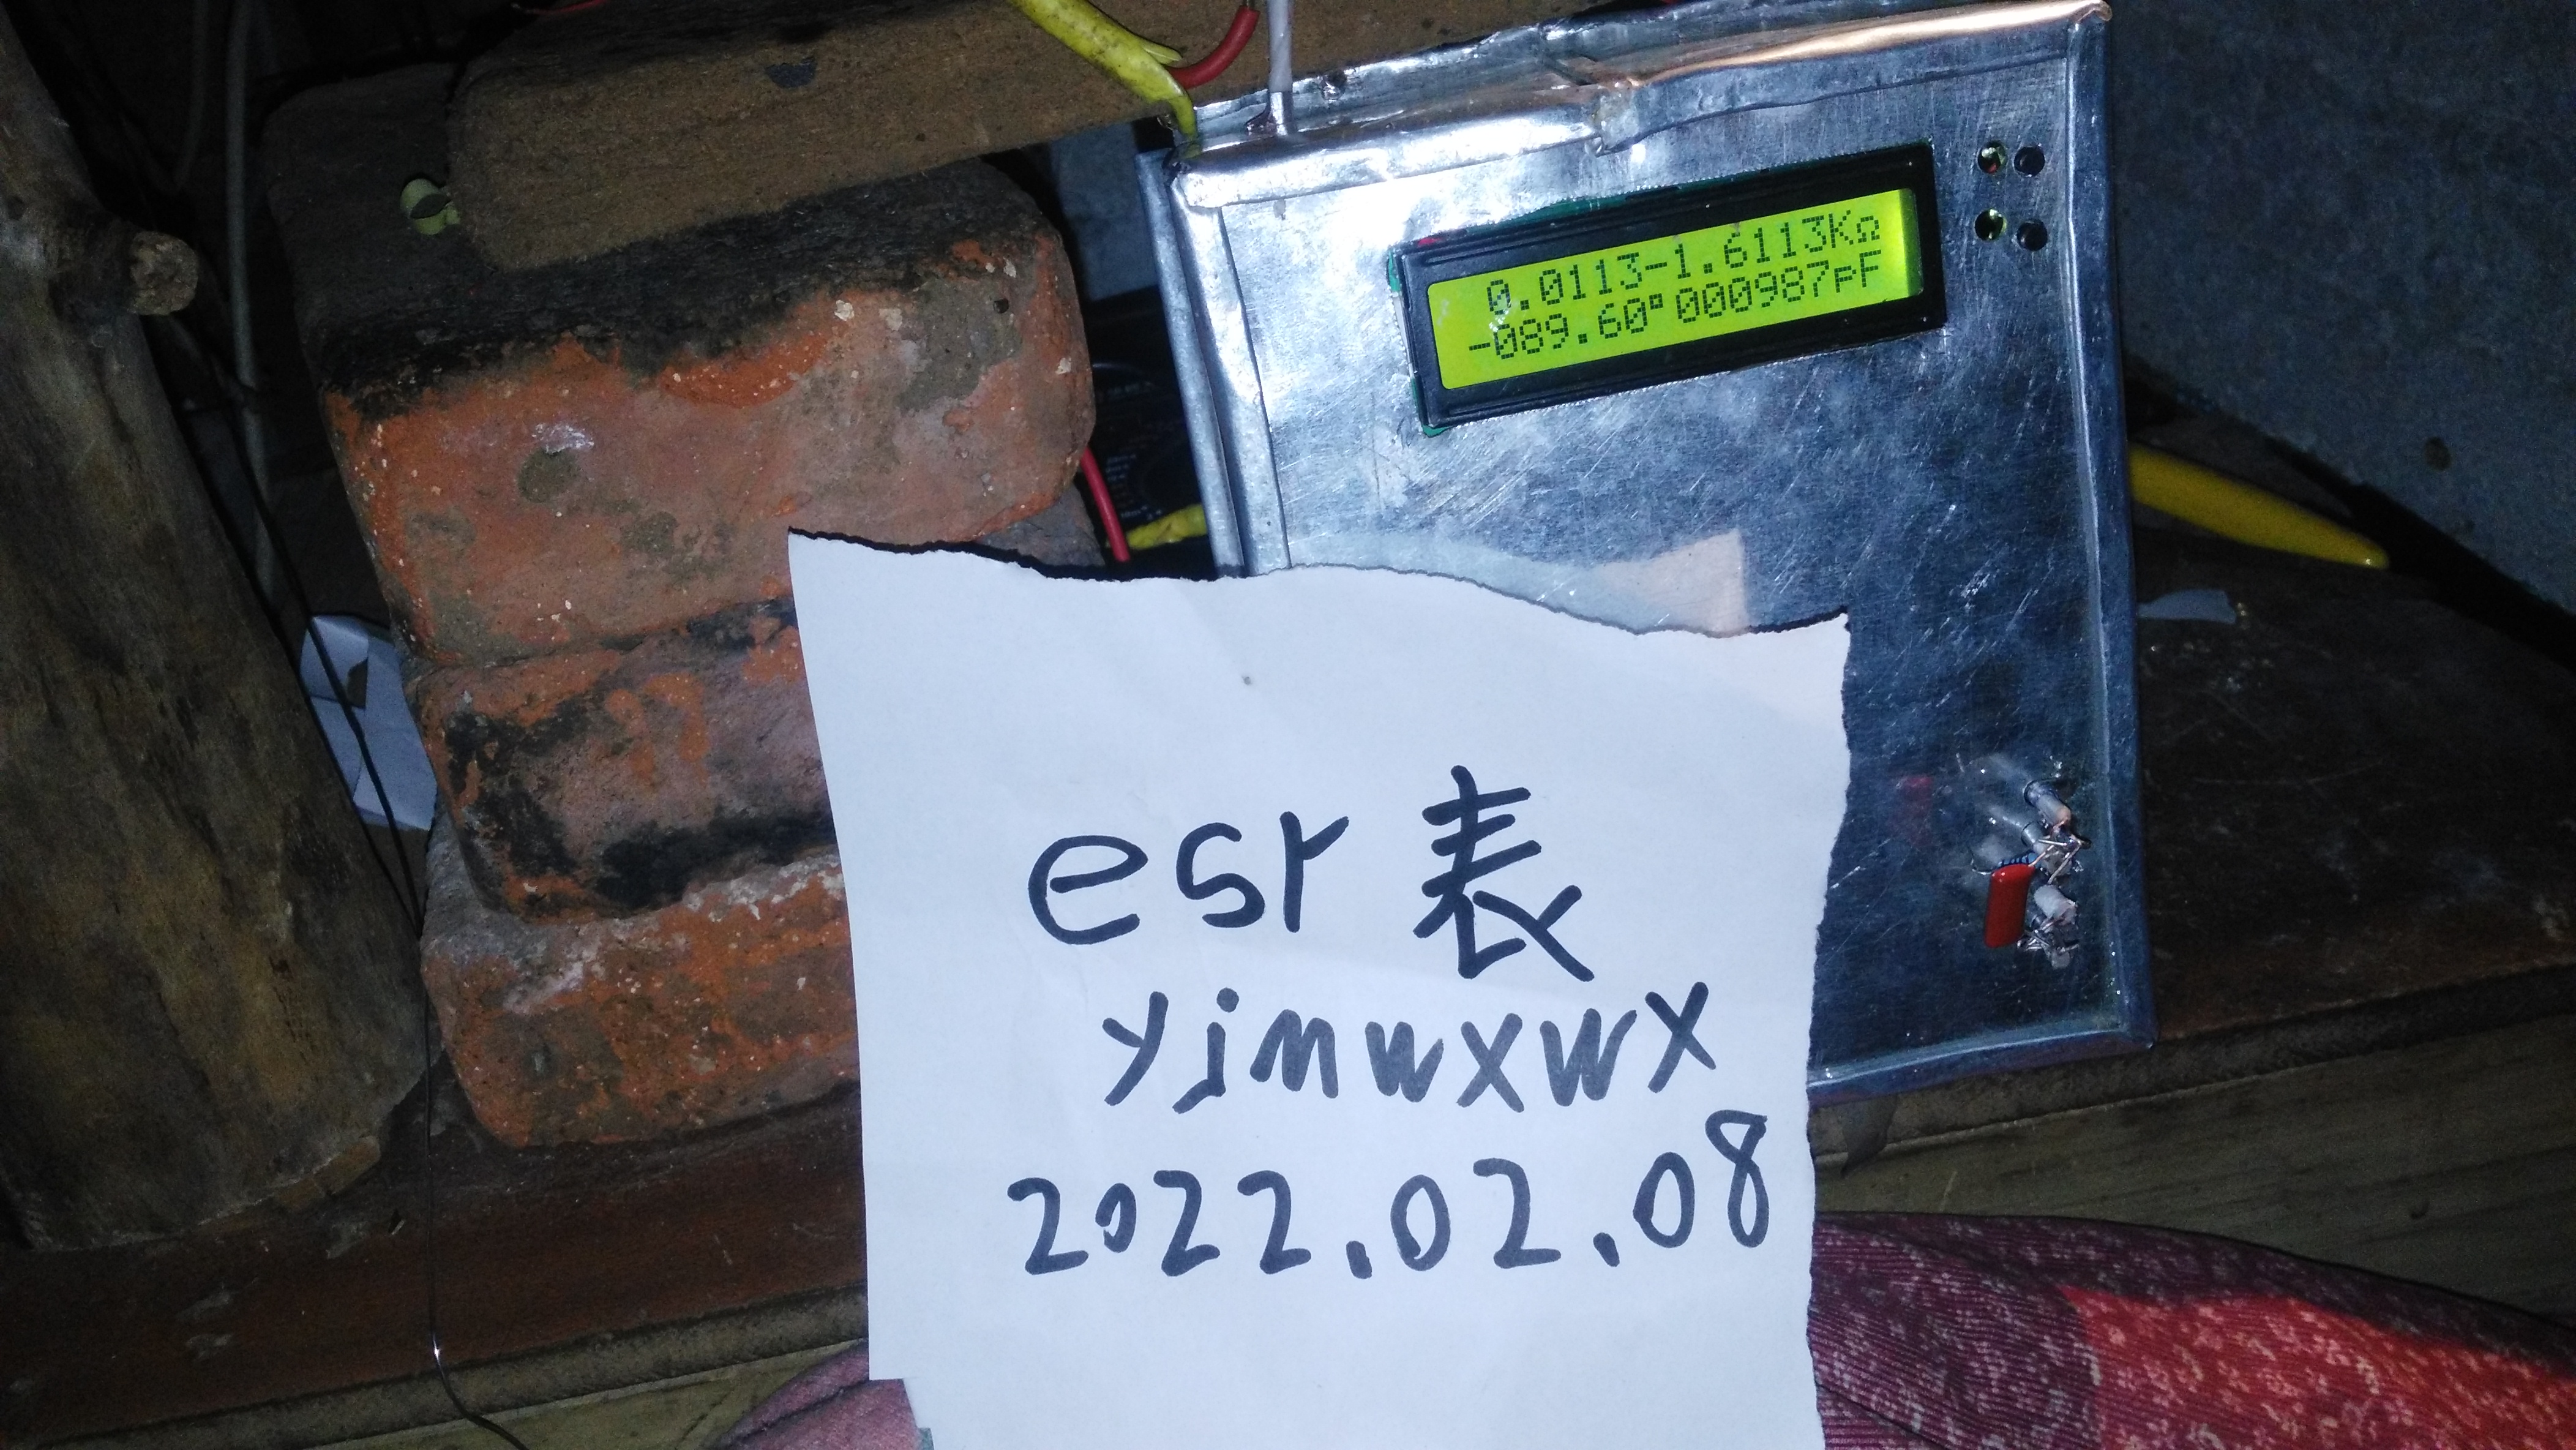 0.0113-1.6113KΩ
-089.60°000987pF
esr 表
yjmwxwx
2022.02.08